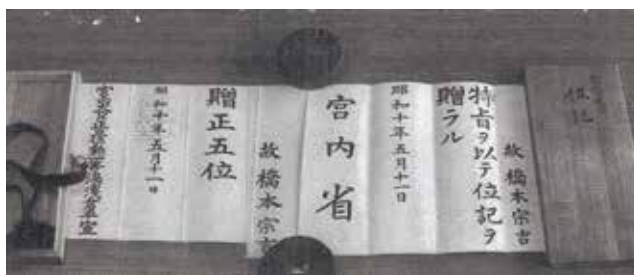 故 橋本宗吉
特旨ヲ以テ位記ヲ
贈ラル
昭和十年五月十一日
宮内省
故 橋本宗吉
贈正五位
昭和十年五月十一日